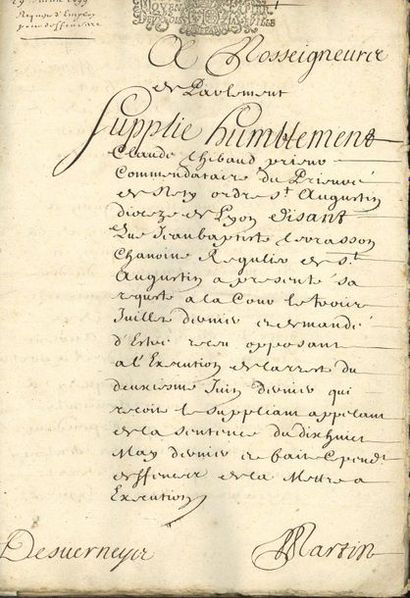 Requeste d'Employ
pour deffenses
MOYEN PAPIER
A Nosseigneurs
de Parlement
Supplie humblement
Claude Thibaud prieur
Commendataire du Prieuré
de ordre St. Augustin
dioceze de Lyon disant
Que Jeanbaptiste
Chanoine Regulier de St.
Augustin a presenté sa
requete a la Cour le
Juillet dernier et demandé
d'Estre receu opposant
a l'Execution de larrest du
deuxiesme Juin dernier qui
recoit le suppliant appelant
de la sentence du dixhuict
May dernier et fait pendt.
deffences de la Mettre a
Execution
Martin